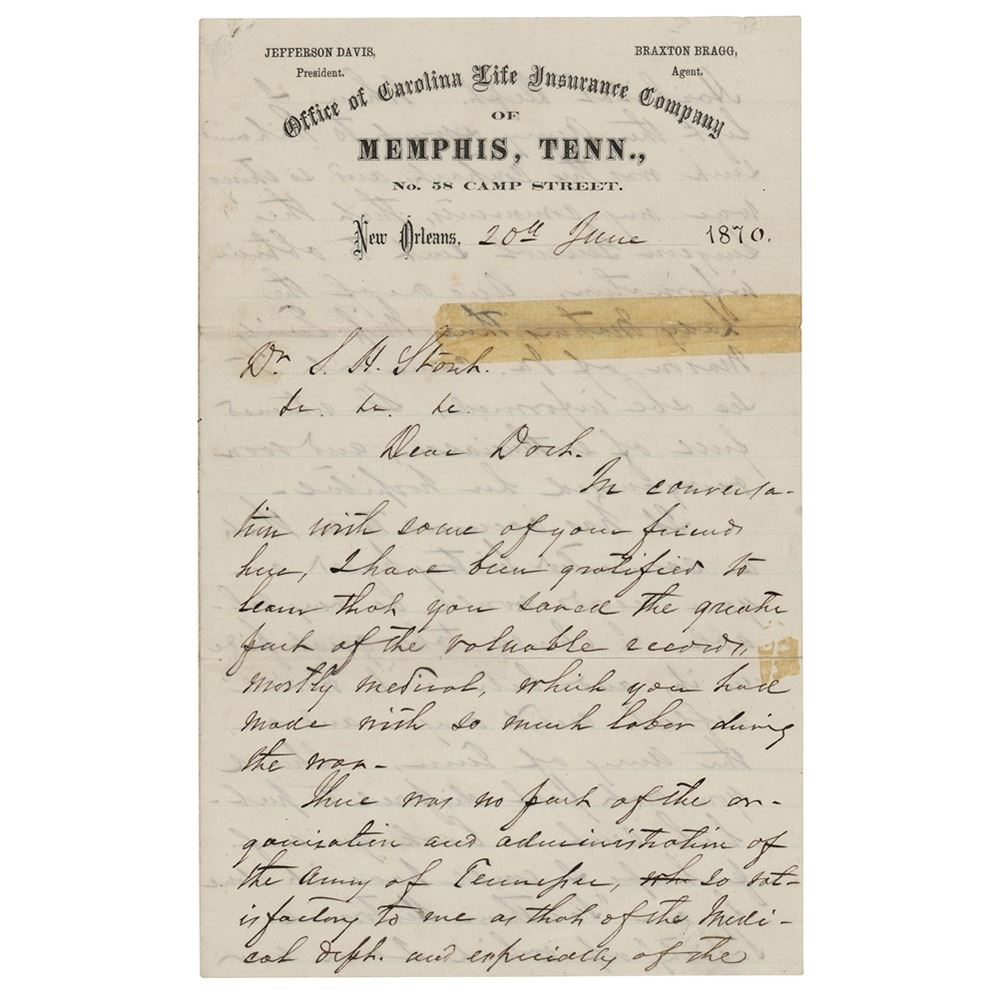 JEFFERSON DAVIS,
President.
BRAXTON BRAGG,
Agent.
Office of Carolina Life Insurance Company
OF
MEMPHIS, TENN.,
No. 58 CAMP STREET.
New Orleans, 20th June 1870.
Dr S. H. Stout.
&c. &c. &c.
Dear Doct.
In conversa-
tion with some of your friends
here, I have been gratified to
learn that you saved the greater
part of the valuable records,
mostly medical, which you had
made with so much labor during
the war-
There was no part of the or-
ganisation and administration of
the Army of Tennessee, so sat-
isfactory to me as that of the Medi-
cal Dept. and especially of the